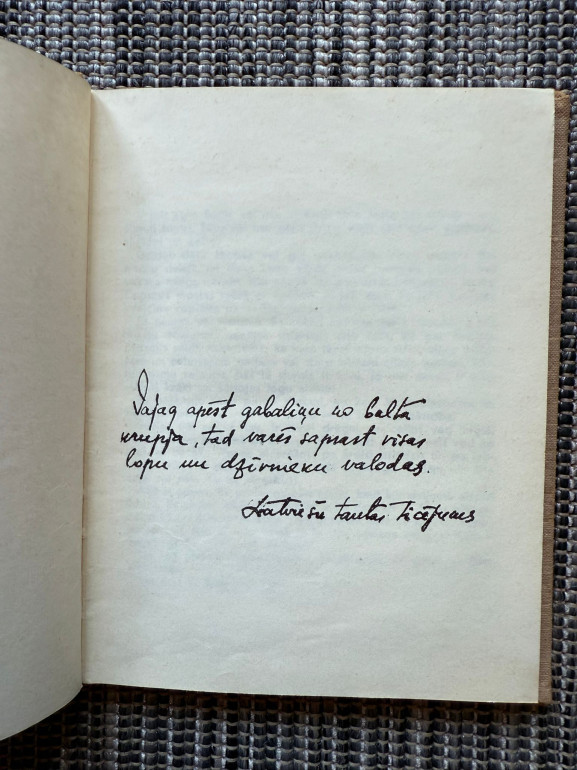 Vajag apēst gabaliņu no balta
krupja, tad varēs saprast visas
lopu un dzīvnieku valodas.
Latviešu tautas ticējums